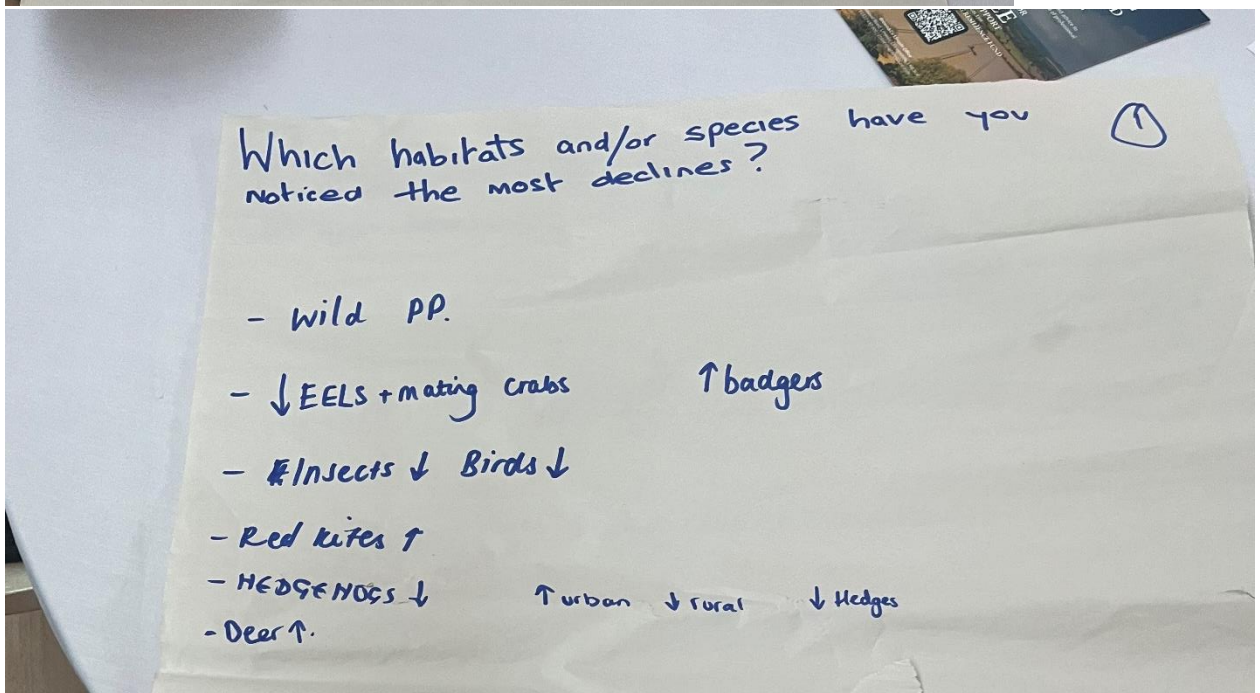 Which habitats and/or species have you
noticed the most declines?
1
- wild PP.
- ↓ EELS + mating crabs ↑ badgers
- Insects ↓ Birds ↓
- Red kites ↑
- HEDGEHOGS ↓ ↑ urban ↓ rural ↓ Hedges
- Deer ↑.